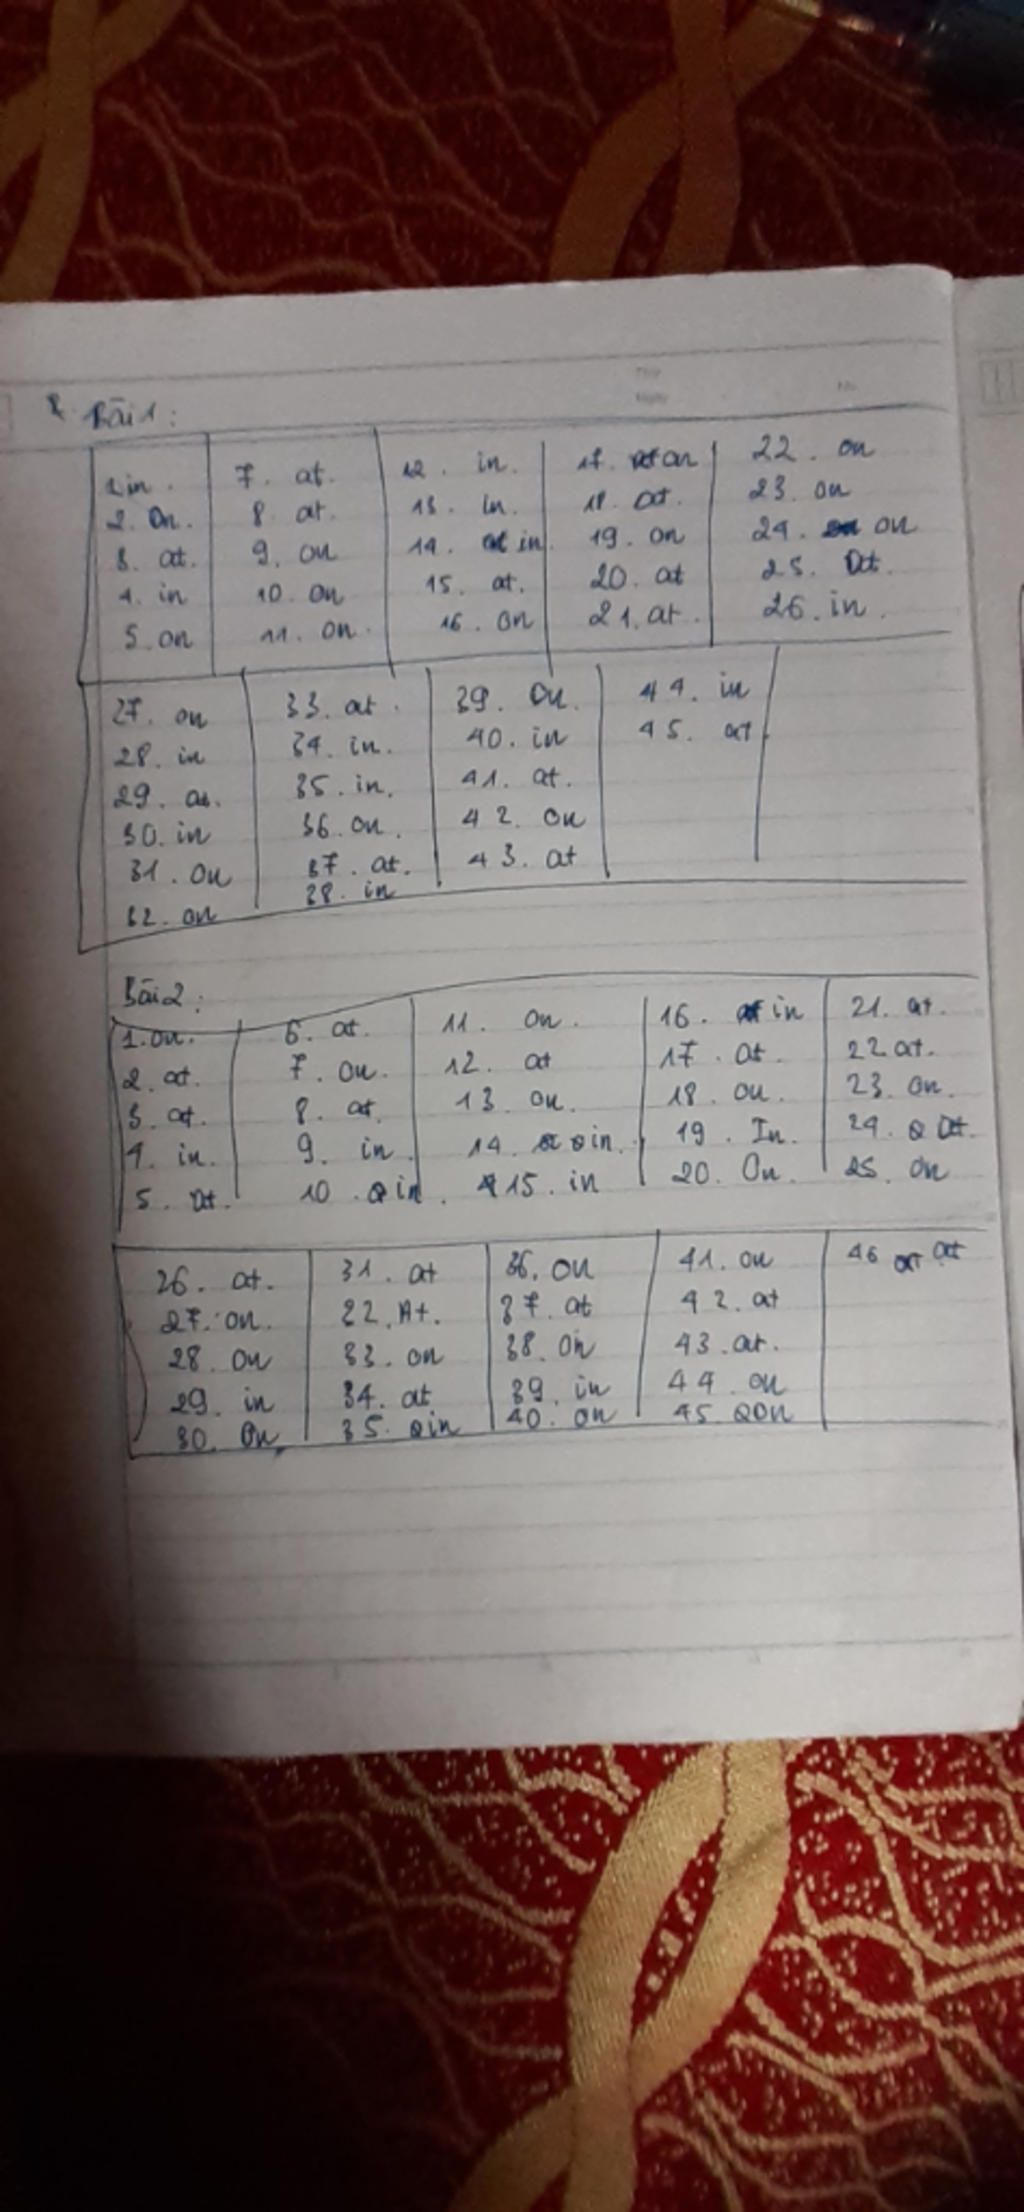 Bài 1:
1. in. 7. at. 12. in. 17. an 22. on
2. On. 8 at. 13. in. 18. at. 23. on
3. at. 9. on 14. in. 19. on 24. on
4. in 10. on 15. at. 20. at 25. At.
5. on 11. on. 16. on 21. at. 26. in.
27. on 33. at. 39. On. 44. in
28. in 34. in. 40. in 45. at
29. at. 35. in. 41. at.
30. in 36. on. 42. on
31. on 37. at. 43. at
32. on 38. in
Bài 2:
1. on. 6. at. 11. on. 16. in 21. at.
2. at. 7. on. 12. at 17. at. 22 at.
3. at. 8. at. 13. on. 18. on. 23. on.
4. in. 9. in. 14. in. 19. In. 24. At.
5. At. 10. in. 15. in 20. On. 25. on
26. at. 31. at 36. on 41. on 46 at
27. on. 32. At. 37. at 42. at
28. on 33. on 38. on 43. at.
29. in 34. at 39. in 44. on
30. On 35. in 40. on 45. on